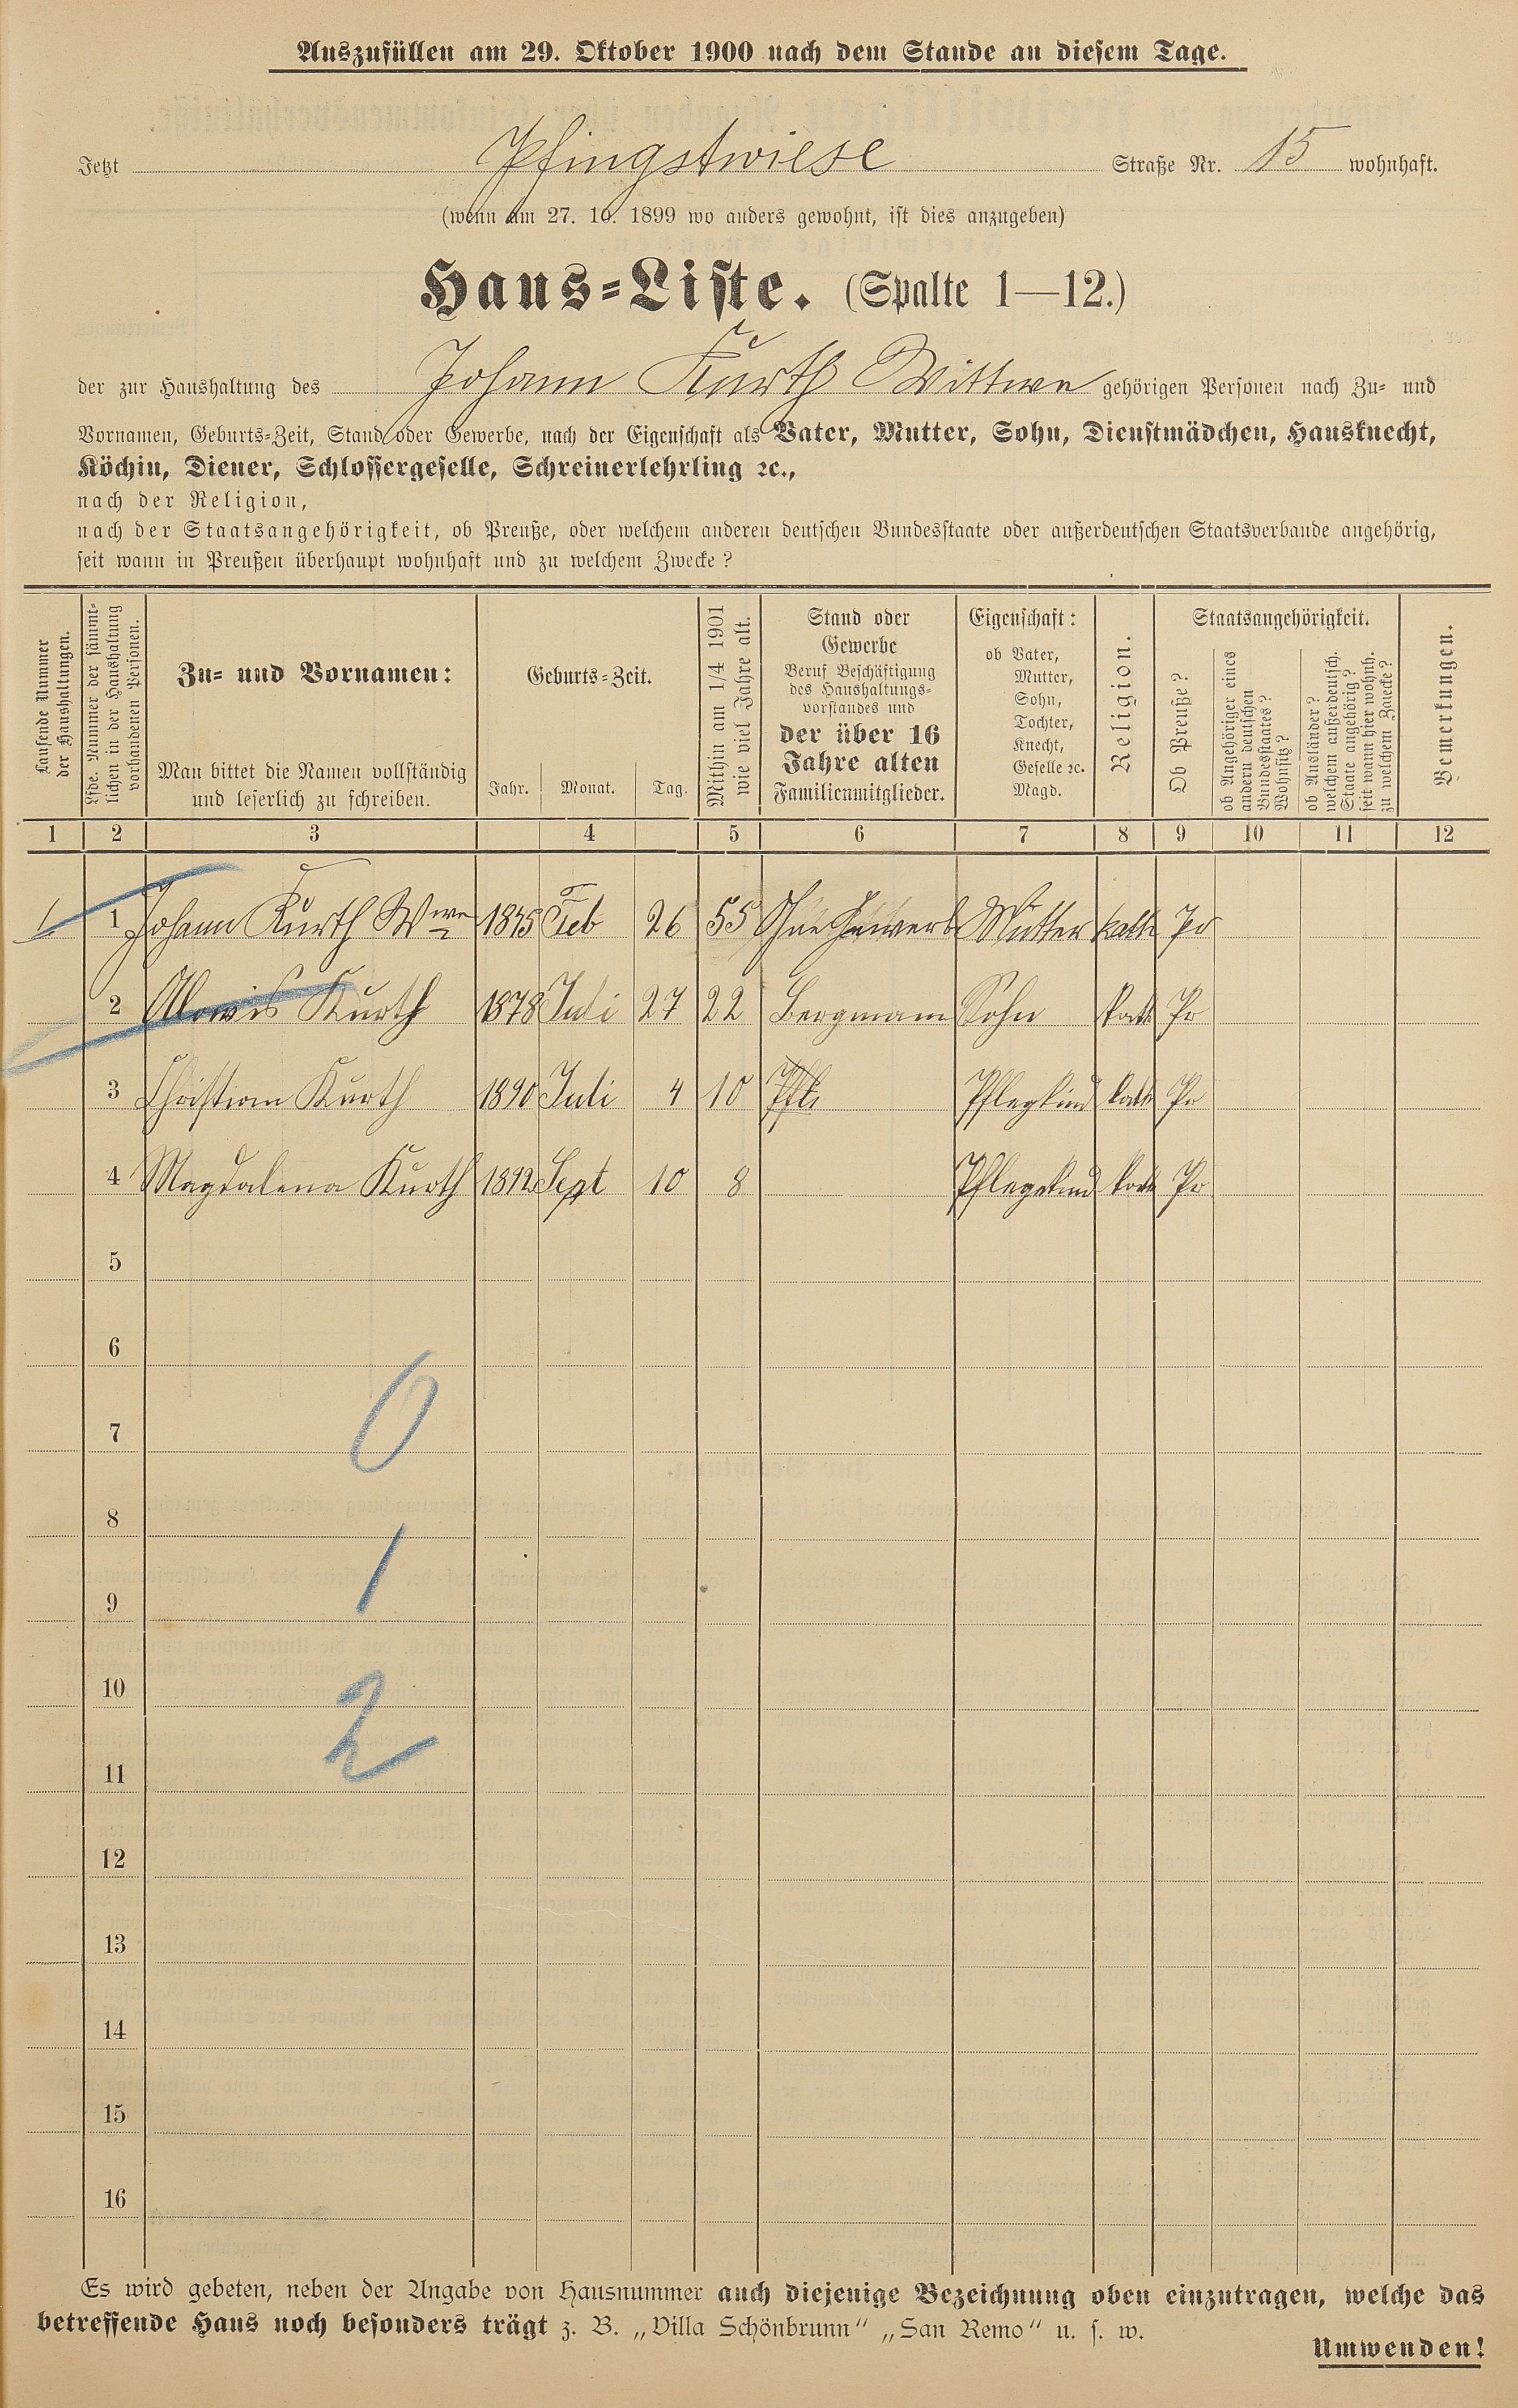 Auszufüllen am 29. Oktober 1900 nach dem Stande an diesem Tage.
Jetzt Pfingstwiese Straße Nr. 15 wohnhaft.
(wenn am 27. 10. 1899 wo anders gewohnt, ist dies anzugeben)
Haus-Liste. (Spalte 1—12.)
der zur Haushaltung des Johann Kurth Wittwe gehörigen Personen nach Zu- und
Vornamen, Geburts-Zeit, Stand oder Gewerbe, nach der Eigenschaft als Vater, Mutter, Sohn, Dienstmädchen, Hausknecht,
Köchin, Diener, Schlossergeselle, Schreinerlehrling ꝛc.,
nach der Religion,
nach der Staatsangehörigkeit, ob Preuße, oder welchem anderen deutschen Bundesstaate oder außerdeutschen Staatsverbande angehörig,
seit wann in Preußen überhaupt wohnhaft und zu welchem Zwecke?
Laufende Nummer
der Haushaltungen.
Lfde. Nummer der sämmt-
lichen in der Haushaltung
vorhandenen Personen.
Zu- und Vornamen:
Man bittet die Namen vollständig
und leserlich zu schreiben.
Geburts-Zeit.
Jahr. Monat. Tag.
Mithin am 1/4 1901
wie viel Jahre alt.
Stand oder
Gewerbe
Beruf Beschäftigung
des Haushaltungs-
vorstandes und
der über 16
Jahre alten
Familienmitglieder.
Eigenschaft:
ob Vater,
Mutter,
Sohn,
Tochter,
Knecht,
Geselle ꝛc.
Magd.
Religion.
Staatsangehörigkeit.
Ob Preuße?
ob Angehöriger eines
andern deutschen
Bundesstaates?
Wohnsitz?
ob Ausländer?
welchem außerdeutsch.
Staate angehörig?
seit wann hier wohnh.
zu welchem Zwecke?
Bemerkungen.
1 2 3 4 5 6 7 8 9 10 11 12
1 1 Johann Kurth Wwe 1845 Feb 26 55 Ohne Gewerb Mutter kath Pr
2 Alowis Kurth 1878 Juli 27 22 Bergmann Sohn kath Pr
3 Christian Kurth 1890 Juli 4 10 Pfl Pflegkind kath Pr
4 Magdalena Kurth 1892 Sept 10 8 Pflegekind kath Pr
5
6
0
7
8
1
9
10
2
11
12
13
14
15
16
Es wird gebeten, neben der Angabe von Hausnummer auch diejenige Bezeichnung oben einzutragen, welche das
betreffende Haus noch besonders trägt z. B. „Villa Schönbrunn“ „San Remo“ u. s. w.
Umwenden!